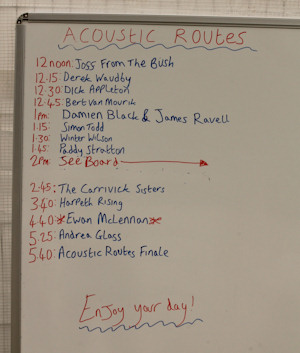 ACOUSTIC ROUTES
12 noon: Joss From The Bush
12.15: Derek Waudby
12.30: Dick Appleton
12.45: Bert Van Mourik
1pm: Damien Black & James Ravell
1.15: Simon Todd
1.30: Winter Wilson
1.45: Paddy Stratton
2pm: See Board
2.45: The Carrivick Sisters
3.40: Harpeth Rising
4.40 Ewan McLennan
5.25: Andrea Glass
5.40: Acoustic Routes Finale
Enjoy your day!